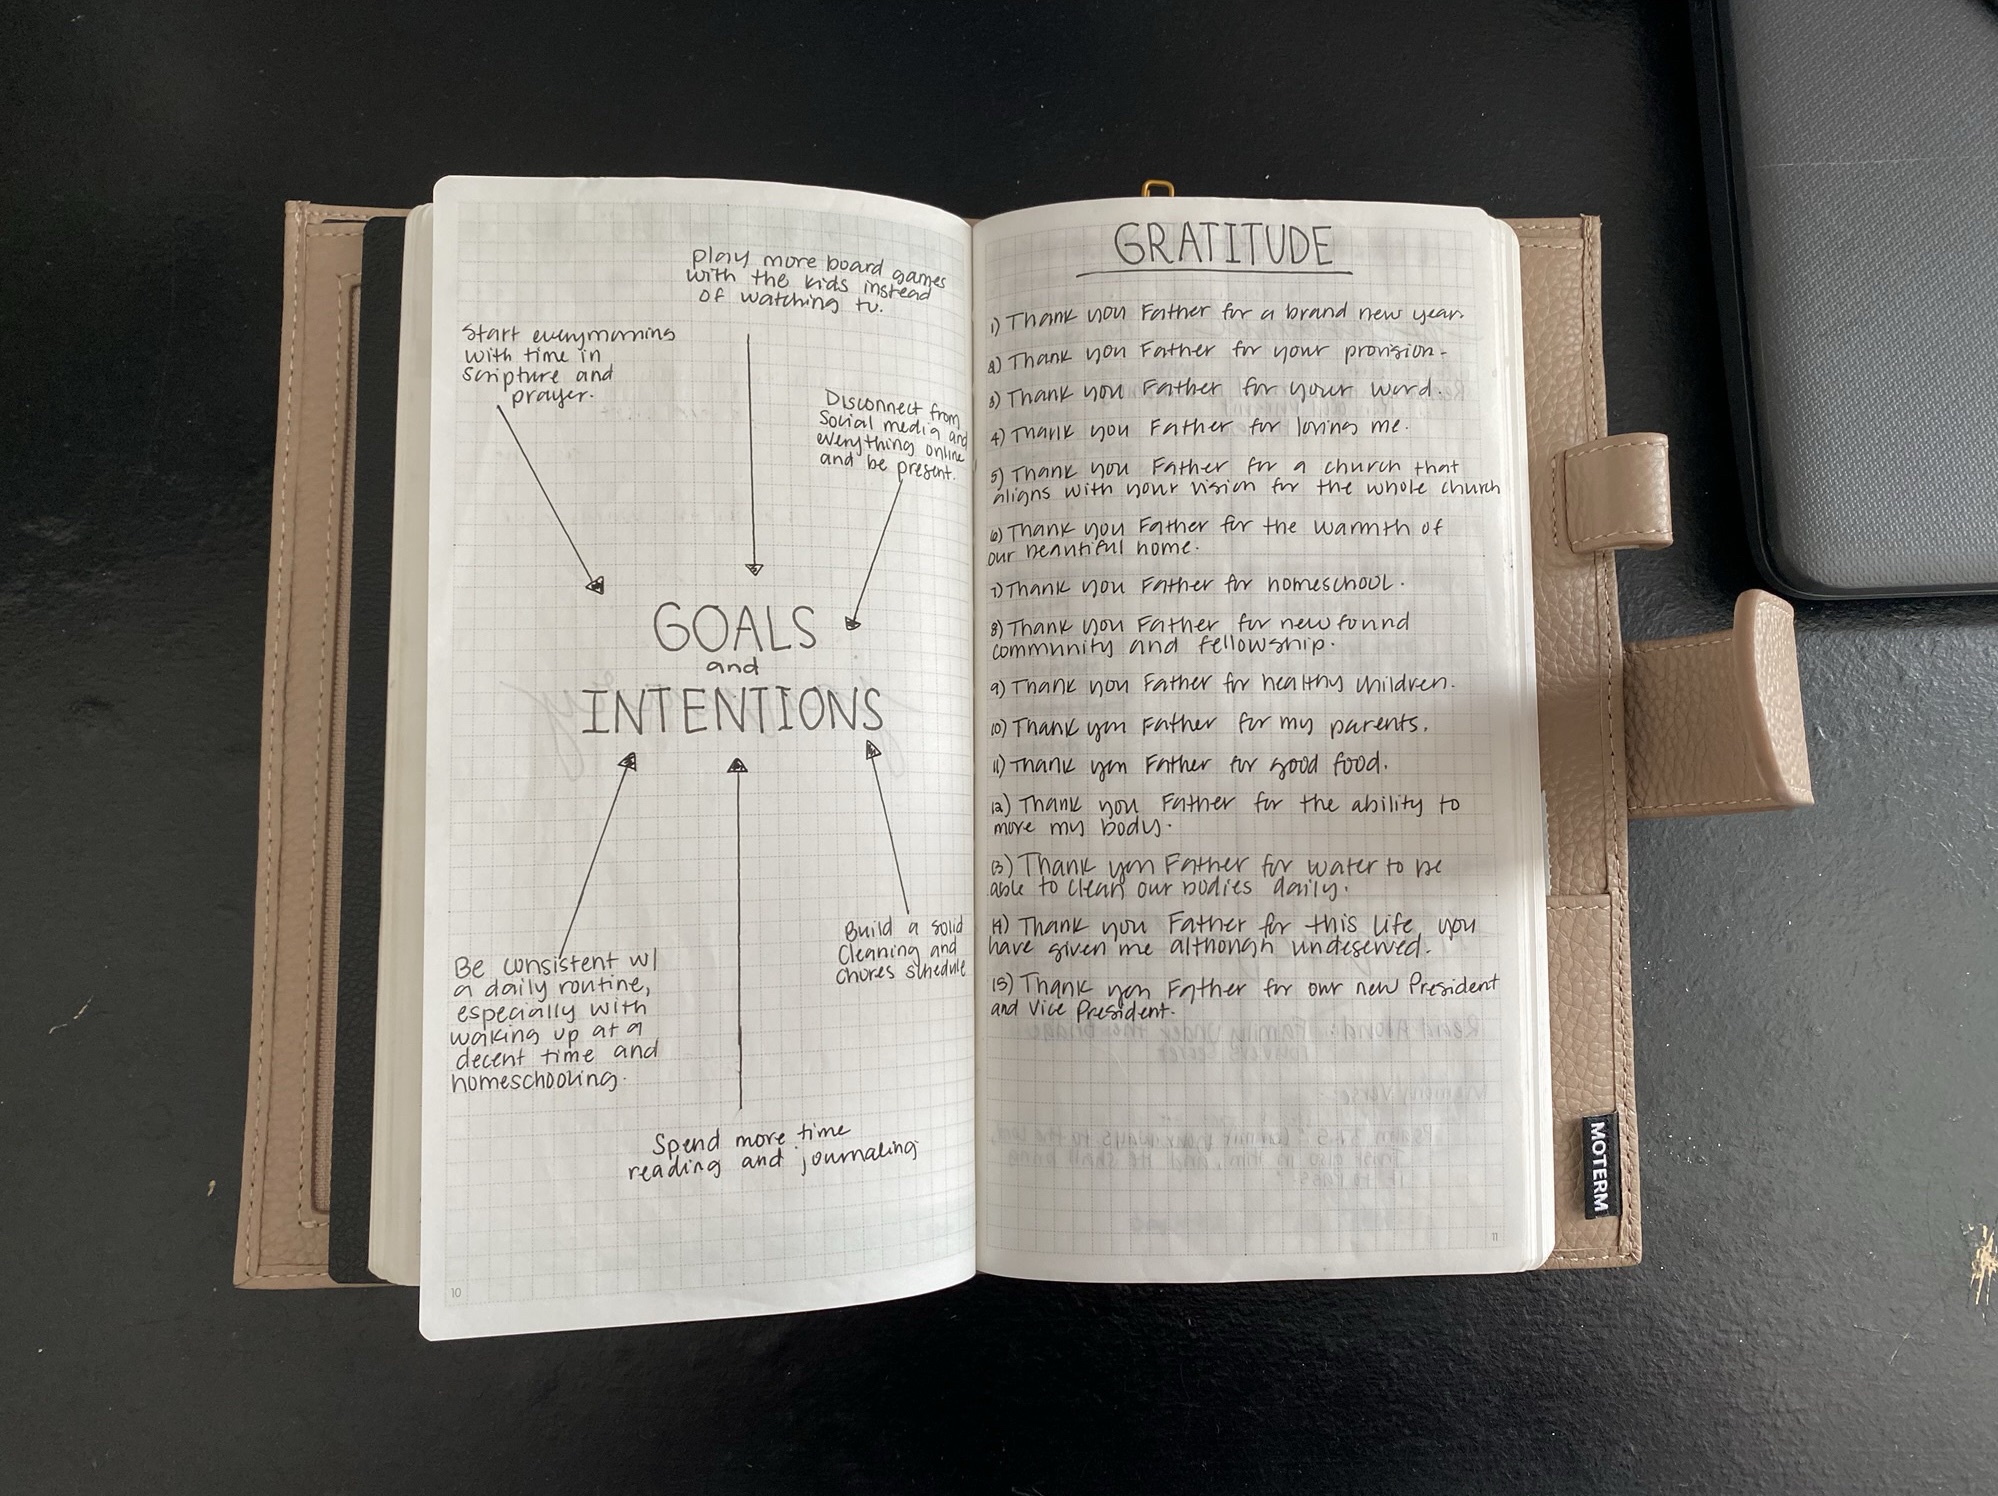 play more board games
with the kids instead
of watching tv.
Start everymorning
with time in
scripture and
prayer.
Disconnect from
Social media and
everything online
and be present.
GOALS
and
INTENTIONS
Be consistent w/
a daily routine,
especially with
waking up at a
decent time and
homeschooling.
Build a solid
cleaning and
chores schedule
Spend more time
reading and journaling
10
GRATITUDE
1) Thank you Father for a brand new year.
2) Thank you Father for your provision.
3) Thank you Father for your word.
4) Thank you Father for loving me.
5) Thank you Father for a church that
aligns with your vision for the whole church
6) Thank you Father for the warmth of
our beautiful home.
7) Thank you Father for homeschool.
8) Thank you Father for new found
community and fellowship.
9) Thank you Father for healthy children.
10) Thank you Father for my parents.
11) Thank you Father for good food.
12) Thank you Father for the ability to
move my body.
13) Thank you Father for water to be
able to clean our bodies daily.
14) Thank you Father for this life you
have given me although undeserved.
15) Thank you Father for our new President
and Vice President.
11
MOTERM